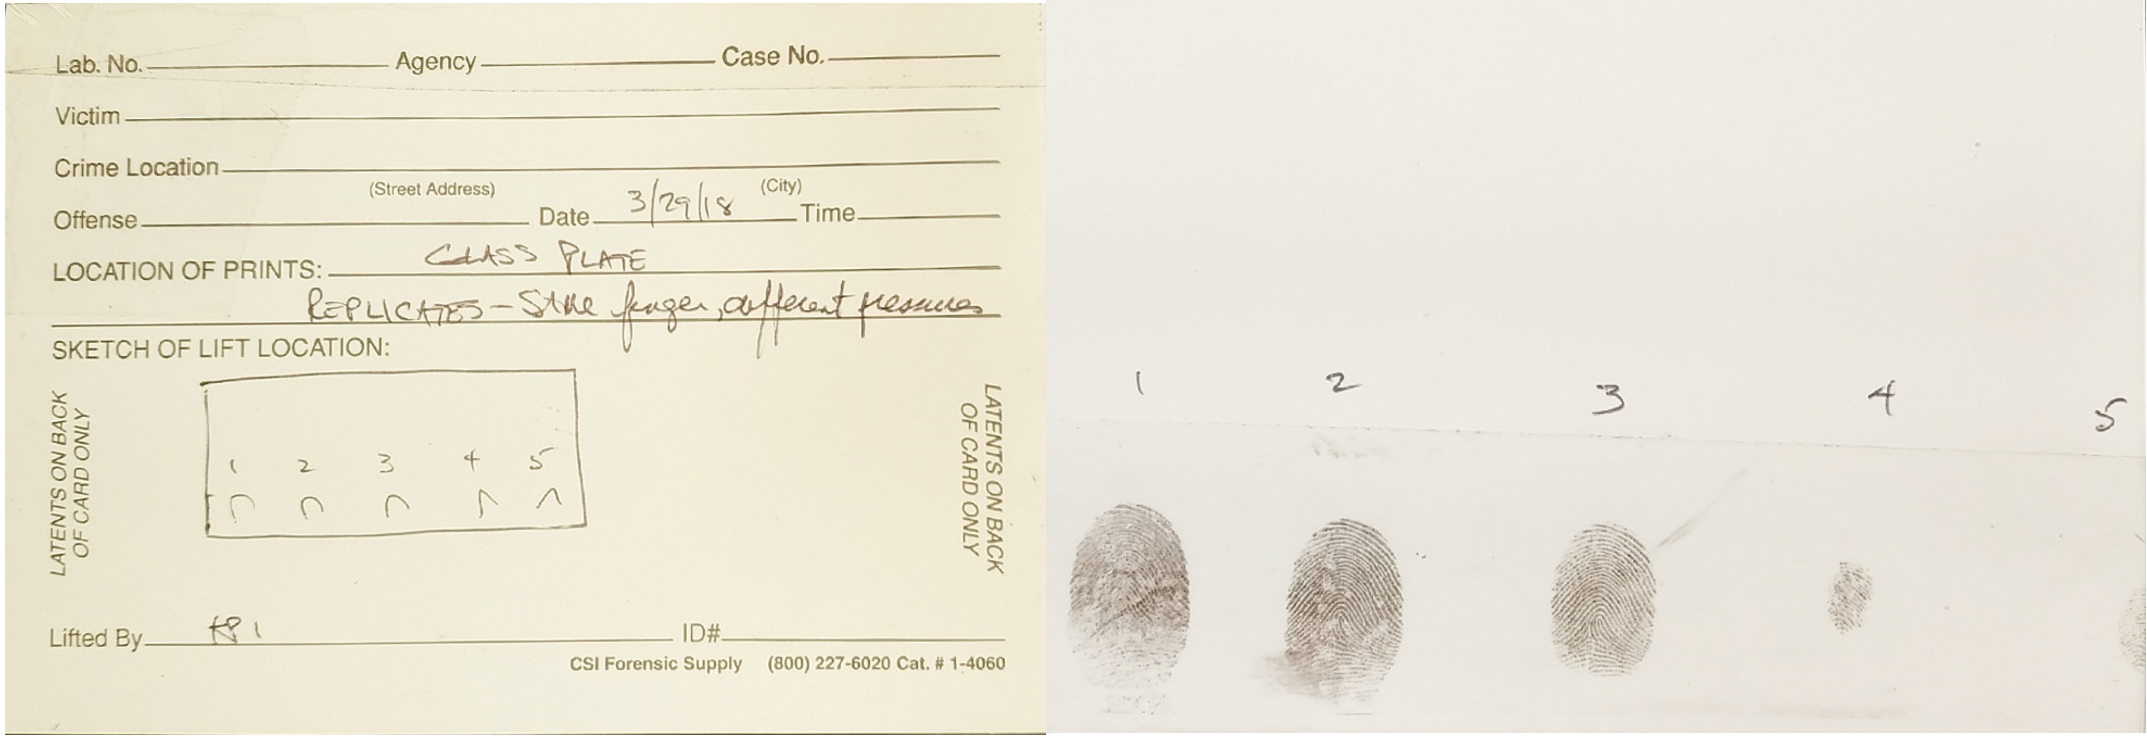 Lab. No. Agency Case No.
Victim
Crime Location
(Street Address) (City)
Offense Date 3/29/18 Time
LOCATION OF PRINTS: GLASS PLATE
REPLICATES - SAME finger, different pressures
SKETCH OF LIFT LOCATION:
LATENTS ON BACK
OF CARD ONLY
1 2 3 4 5
LATENTS ON BACK
OF CARD ONLY
Lifted By ID#
CSI Forensic Supply (800) 227-6020 Cat. # 1-4060
1 2 3 4 5